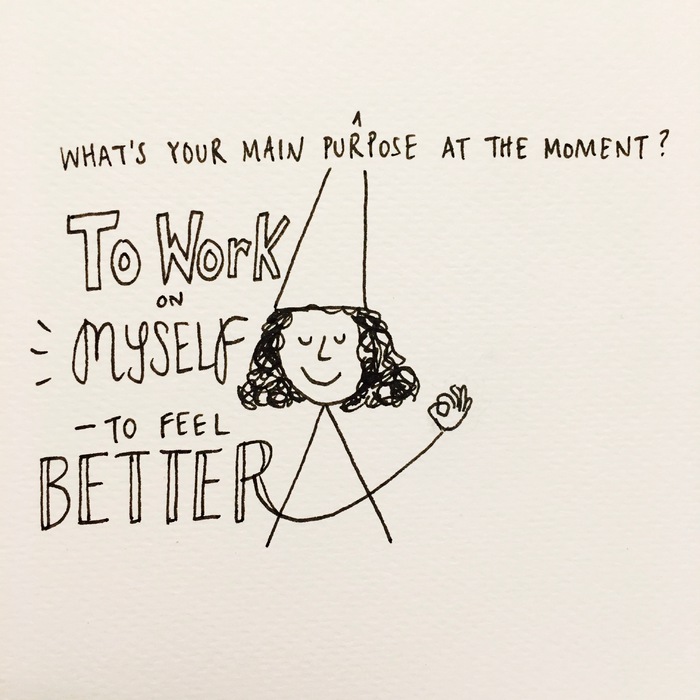 WHAT'S YOUR MAIN PURPOSE AT THE MOMENT?
To Work
ON
MYSELF
- TO FEEL
BETTER